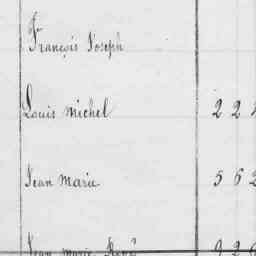 François Joseph
Louis Michel 2 2
Jean Marie 5 6 2
Jean Marie René 9 2